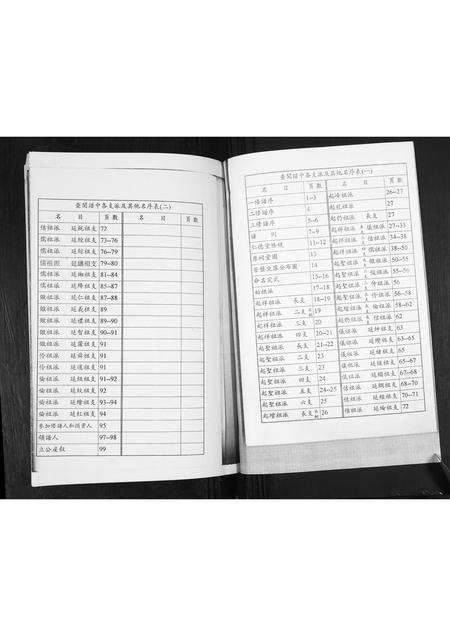 查閱譜中各支派及其他名序表(一)
名 目 頁數
一修譜序 1--3
二修譜序 4
三修譜序 5--6
譜 則 7--9
仁德堂條規 11--12
宗祠堂圖 13
墓塋坐落分布圖 14
命名定式 15--16
始祖派 17--18
起祥祖派 長支 18--19
起祥祖派 二支 19
起祥祖派 三支 20
起祥祖派 四支 20--21
起聖祖派 長支 21--22
起聖祖派 二支 23
起聖祖派 三支 23
起聖祖派 四支 24
起聖祖派 五支 24
起聖祖派 六支 25
起增祖派 長支 26
名 目 頁數
起峰祖派 26--27
起龍祖派 27
起豹祖派 長支 27
起祥祖派 儀祖支 27--33
起祥祖派 信祖支 34--38
起祥祖派 儒祖支 38--50
起聖祖派 儆祖支 50--55
起聖祖派 俊祖支 55--56
起聖祖派 仲祖支 56
起聖祖派 伶祖支 56--58
起增祖派 倫祖支 58--62
起豹祖派 祖支 62
儀祖派 延紳祖支 63
儀祖派 延纓祖支 63--65
儀祖派 延緒祖支 65
儀祖派 祖支 65--67
儀祖派 祖支 67--68
信祖派 祖支 68--70
信祖派 延經祖支 70--71
信祖派 延綸祖支 72
查閱譜中各支派及其他名序表(二)
名 目 頁數 名 目 頁數
信祖派 延統祖支 72
儒祖派 延綬祖支 73--76
儒祖派 延綜祖支 76--79
儒祖派 延纘祖支 79--80
儒祖派 祖支 81--84
儒祖派 延絳祖支 85--87
儆祖派 延仁祖支 87--88
儆祖派 延義祖支 89
儆祖派 延禮祖支 89--90
儆祖派 延智祖支 90--91
儆祖派 延藩祖支 91
伶祖派 延舜祖支 91
伶祖派 延選祖支 91
倫祖派 延組祖支 91--92
倫祖派 延紋祖支 92
倫祖派 延繪祖支 93--94
倫祖派 延紅祖支 94
參加修譜人和捐資人 95
領譜人 97--98
立公產叙 99